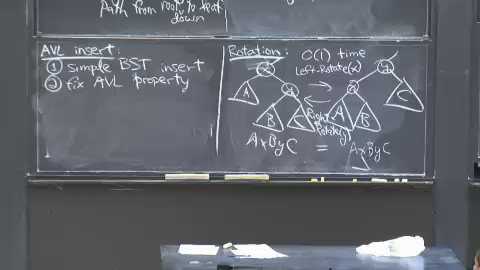 Path from root to leaf
down
AVL insert:
① simple BST insert
② fix AVL property
Rotation: O(1) time
Left-Rotate(x)
x
y
A
y
x
C
B
C
A
B
Right
Rotate(y)
AxByC = AxByC